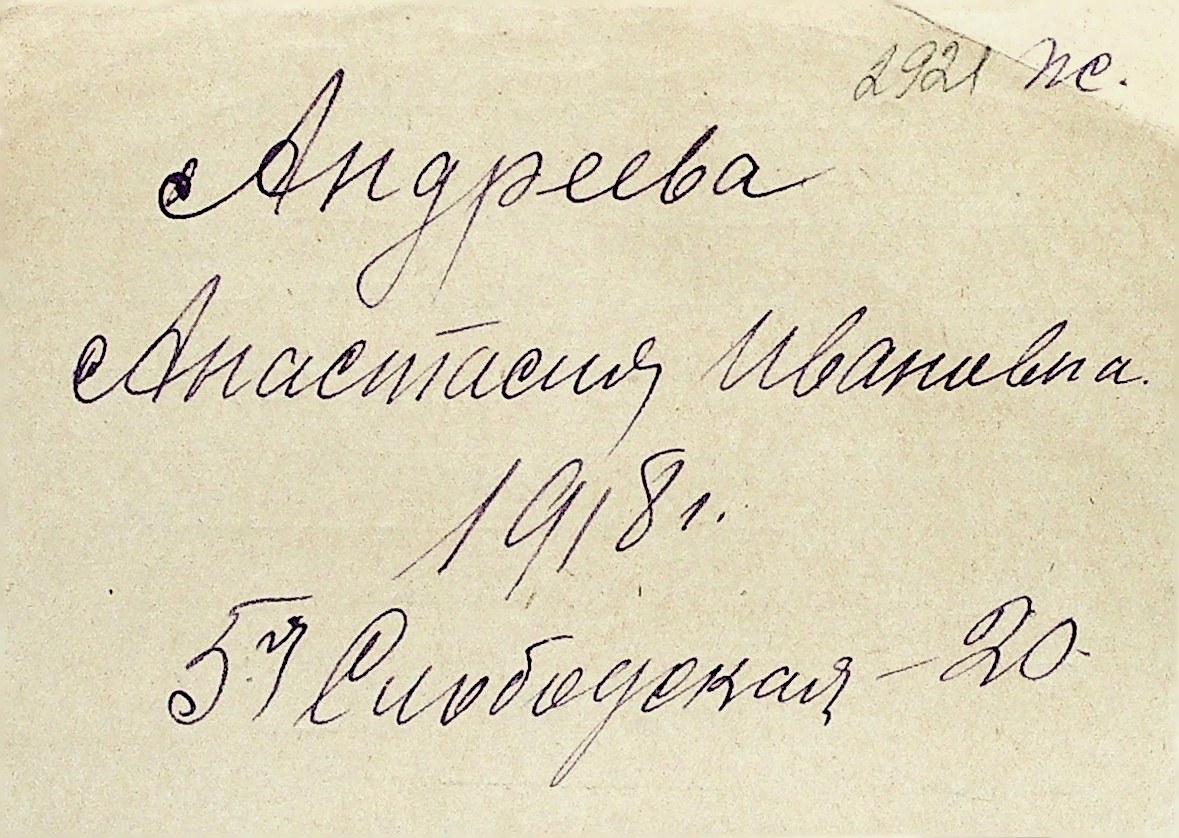 2921 ж.
Андреева
Анастасия Ивановна.
1918 г.
5я Слободская - 20